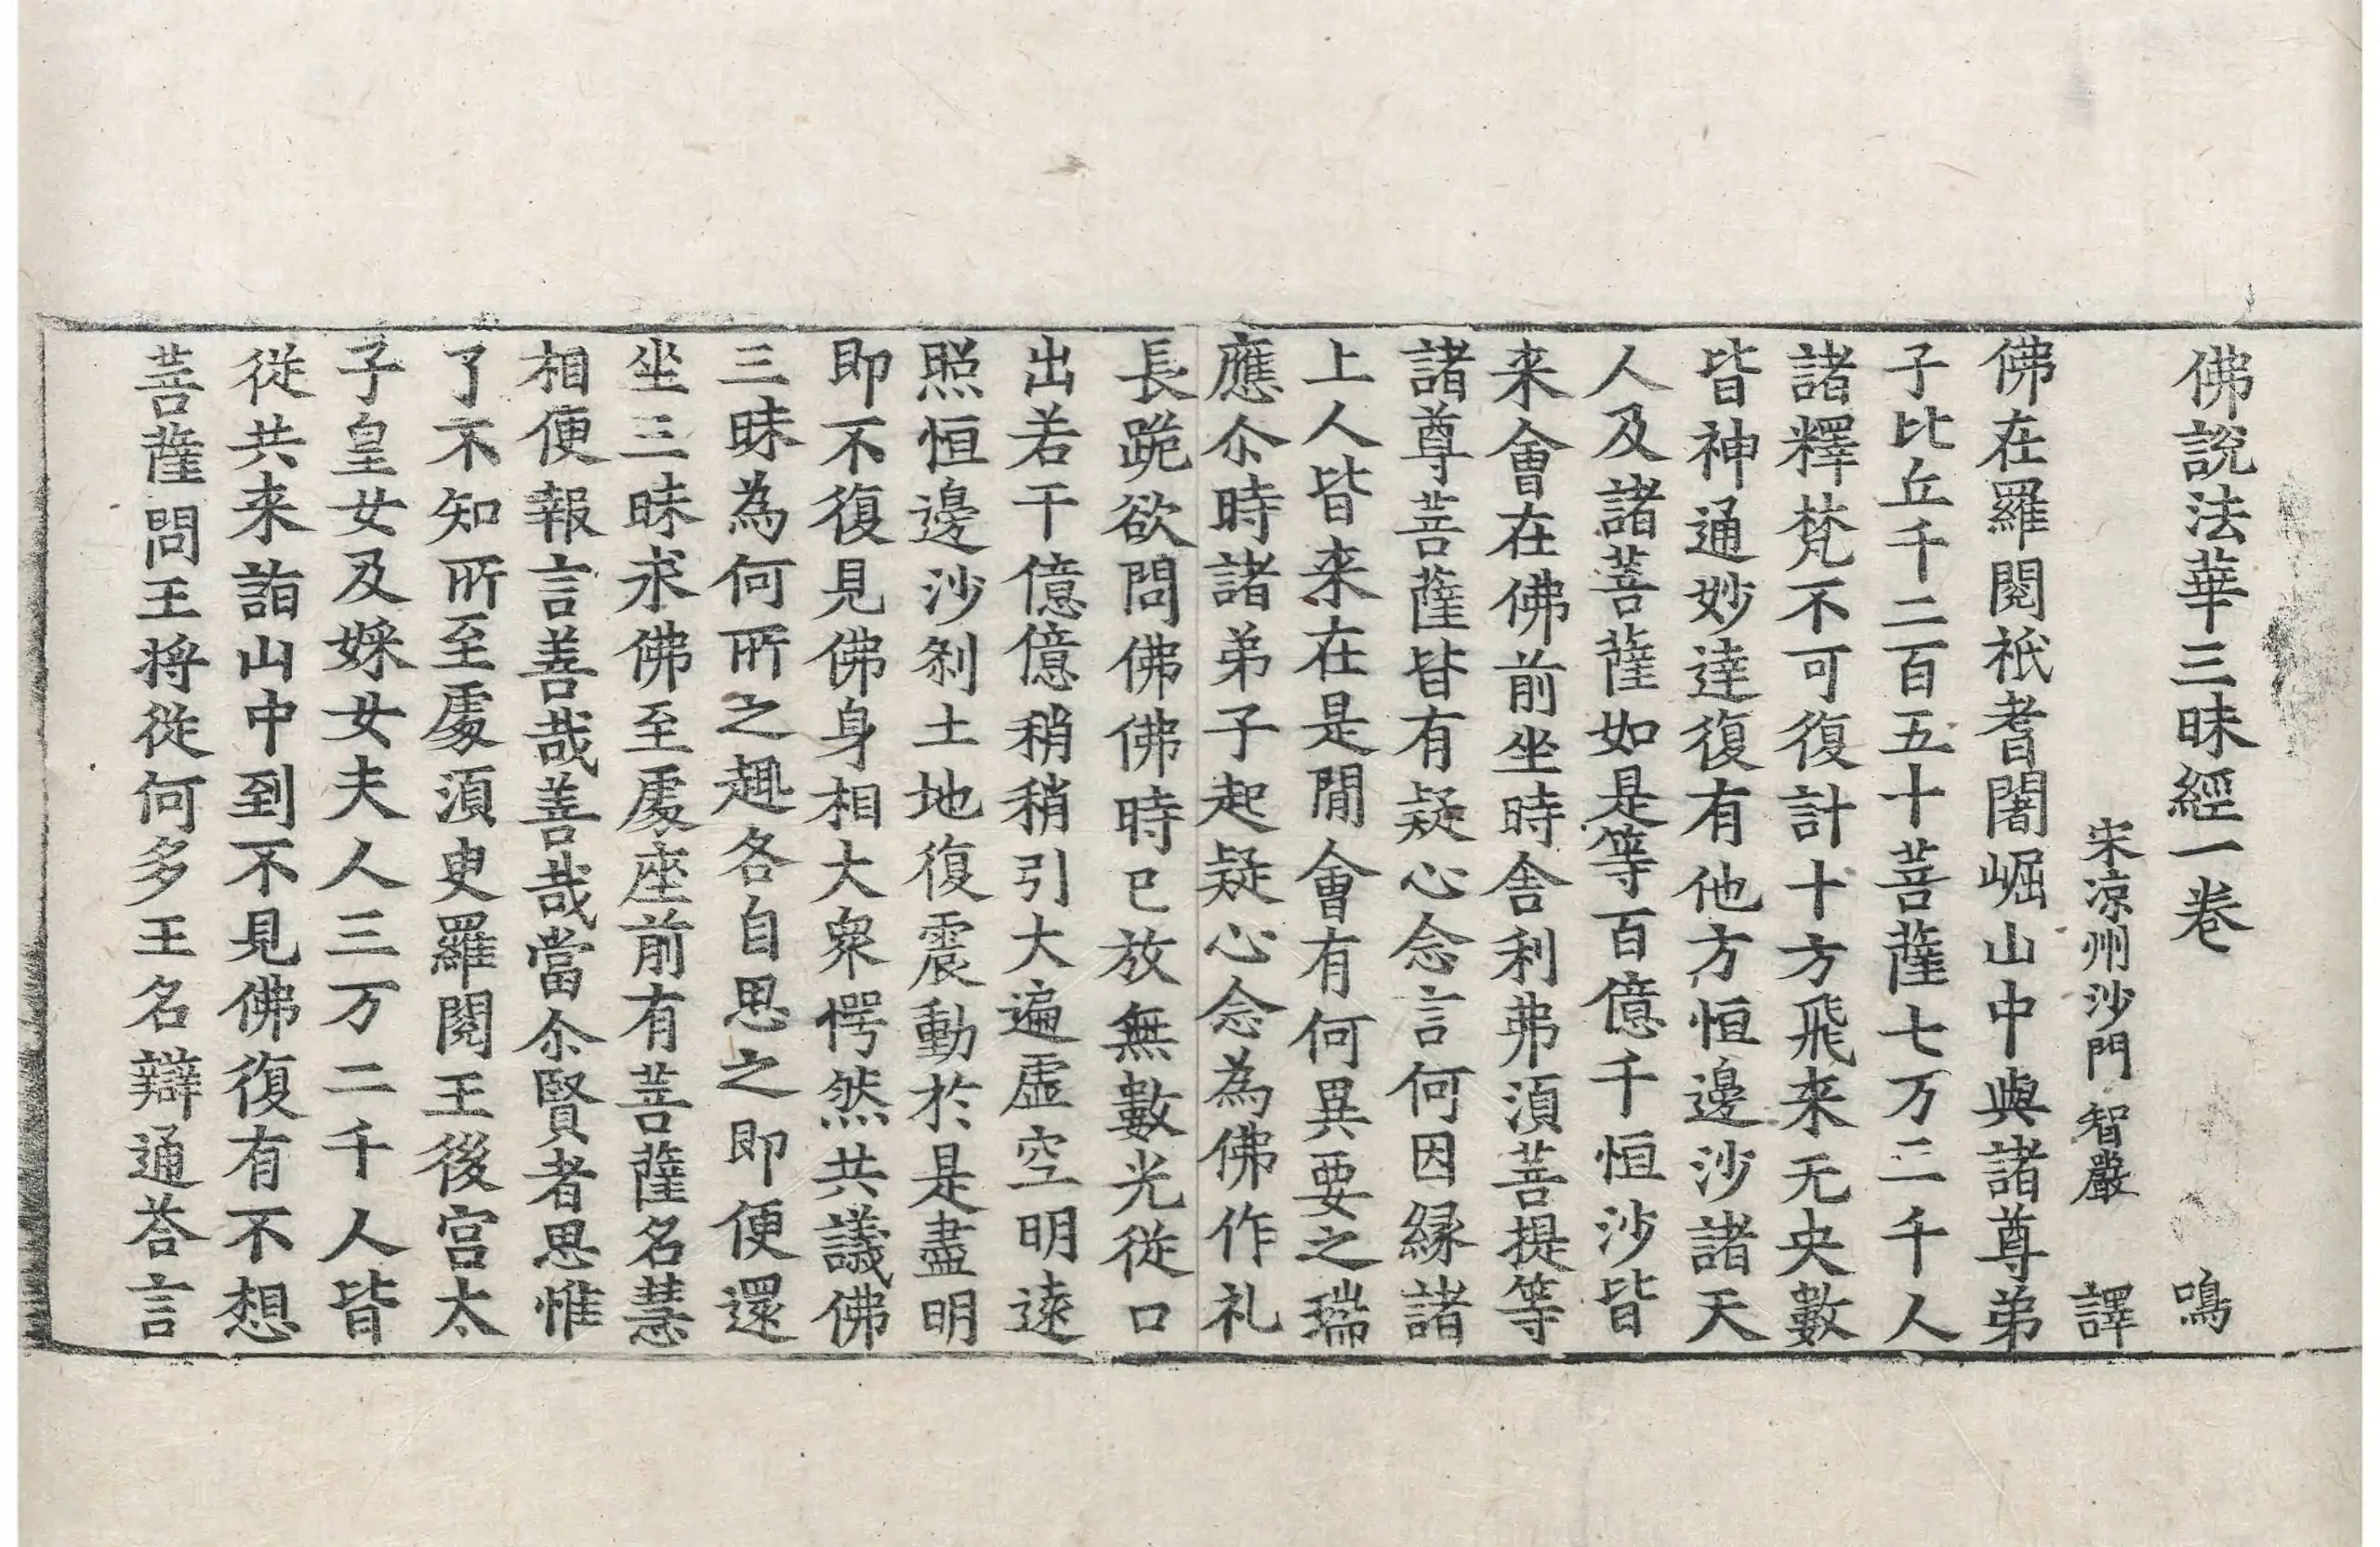 佛說法華三昧經一卷 鳴
宋涼州沙門 智嚴 譯
佛在羅閱祇耆闍崛山中與諸尊弟
子比丘千二百五十菩薩七万二千人
諸釋梵不可復計十方飛来无央數
皆神通妙達復有他方恒邊沙諸天
人及諸菩薩如是等百億千恒沙皆
来會在佛前坐時舍利弗湏菩提等
諸尊菩薩皆有疑心念言何因縁諸
上人皆来在是閒會有何異要之瑞
應尒時諸弟子起疑心念為佛作礼
長跪欲問佛佛時已放無數光従口
出若干億億稍稍引大遍虛空明逺
照恒邊沙剎土地復震動於是盡明
即不復見佛身相大衆愕然共議佛
三昧為何所之趣各自思之即便還
坐三昧求佛至處座前有菩薩名慧
相便報言善哉善哉當尒賢者思惟
了不知所至處湏臾羅閱王後宮太
子皇女及婇女夫人三万二千人皆
従共来詣山中到不見佛復有不想
菩薩問王将従何多王名辯通荅言